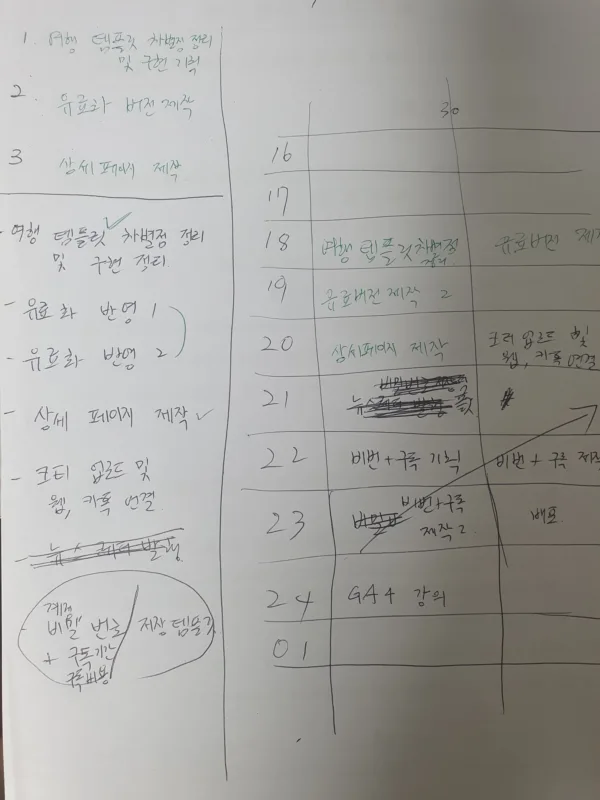 1. 여행 템플릿 차별점 정리
및 구현 기획
2. 유료화 버전 제작
3 상세페이지 제작
- 여행 템플릿 차별점 정리
및 구현 정리
- 유료화 반영 1
- 유료화 반영 2
- 상세 페이지 제작
- 코티 업로드 및
웹, 카톡 연결
- 뉴스레터 발행
계정
비밀번호 / 저장 템플릿
+ 구독기간
구독비용
30
16
17
18 여행 템플릿 차별점 정리 유료버전 제작
19 유료버전 제작 2
20 상세페이지 제작 코티 업로드 및
웹, 카톡 연결
21
22 비번 + 구독 기획 비번 + 구독 제작
23 비번+구독
제작 2. 배포
24 GA4 강의
01